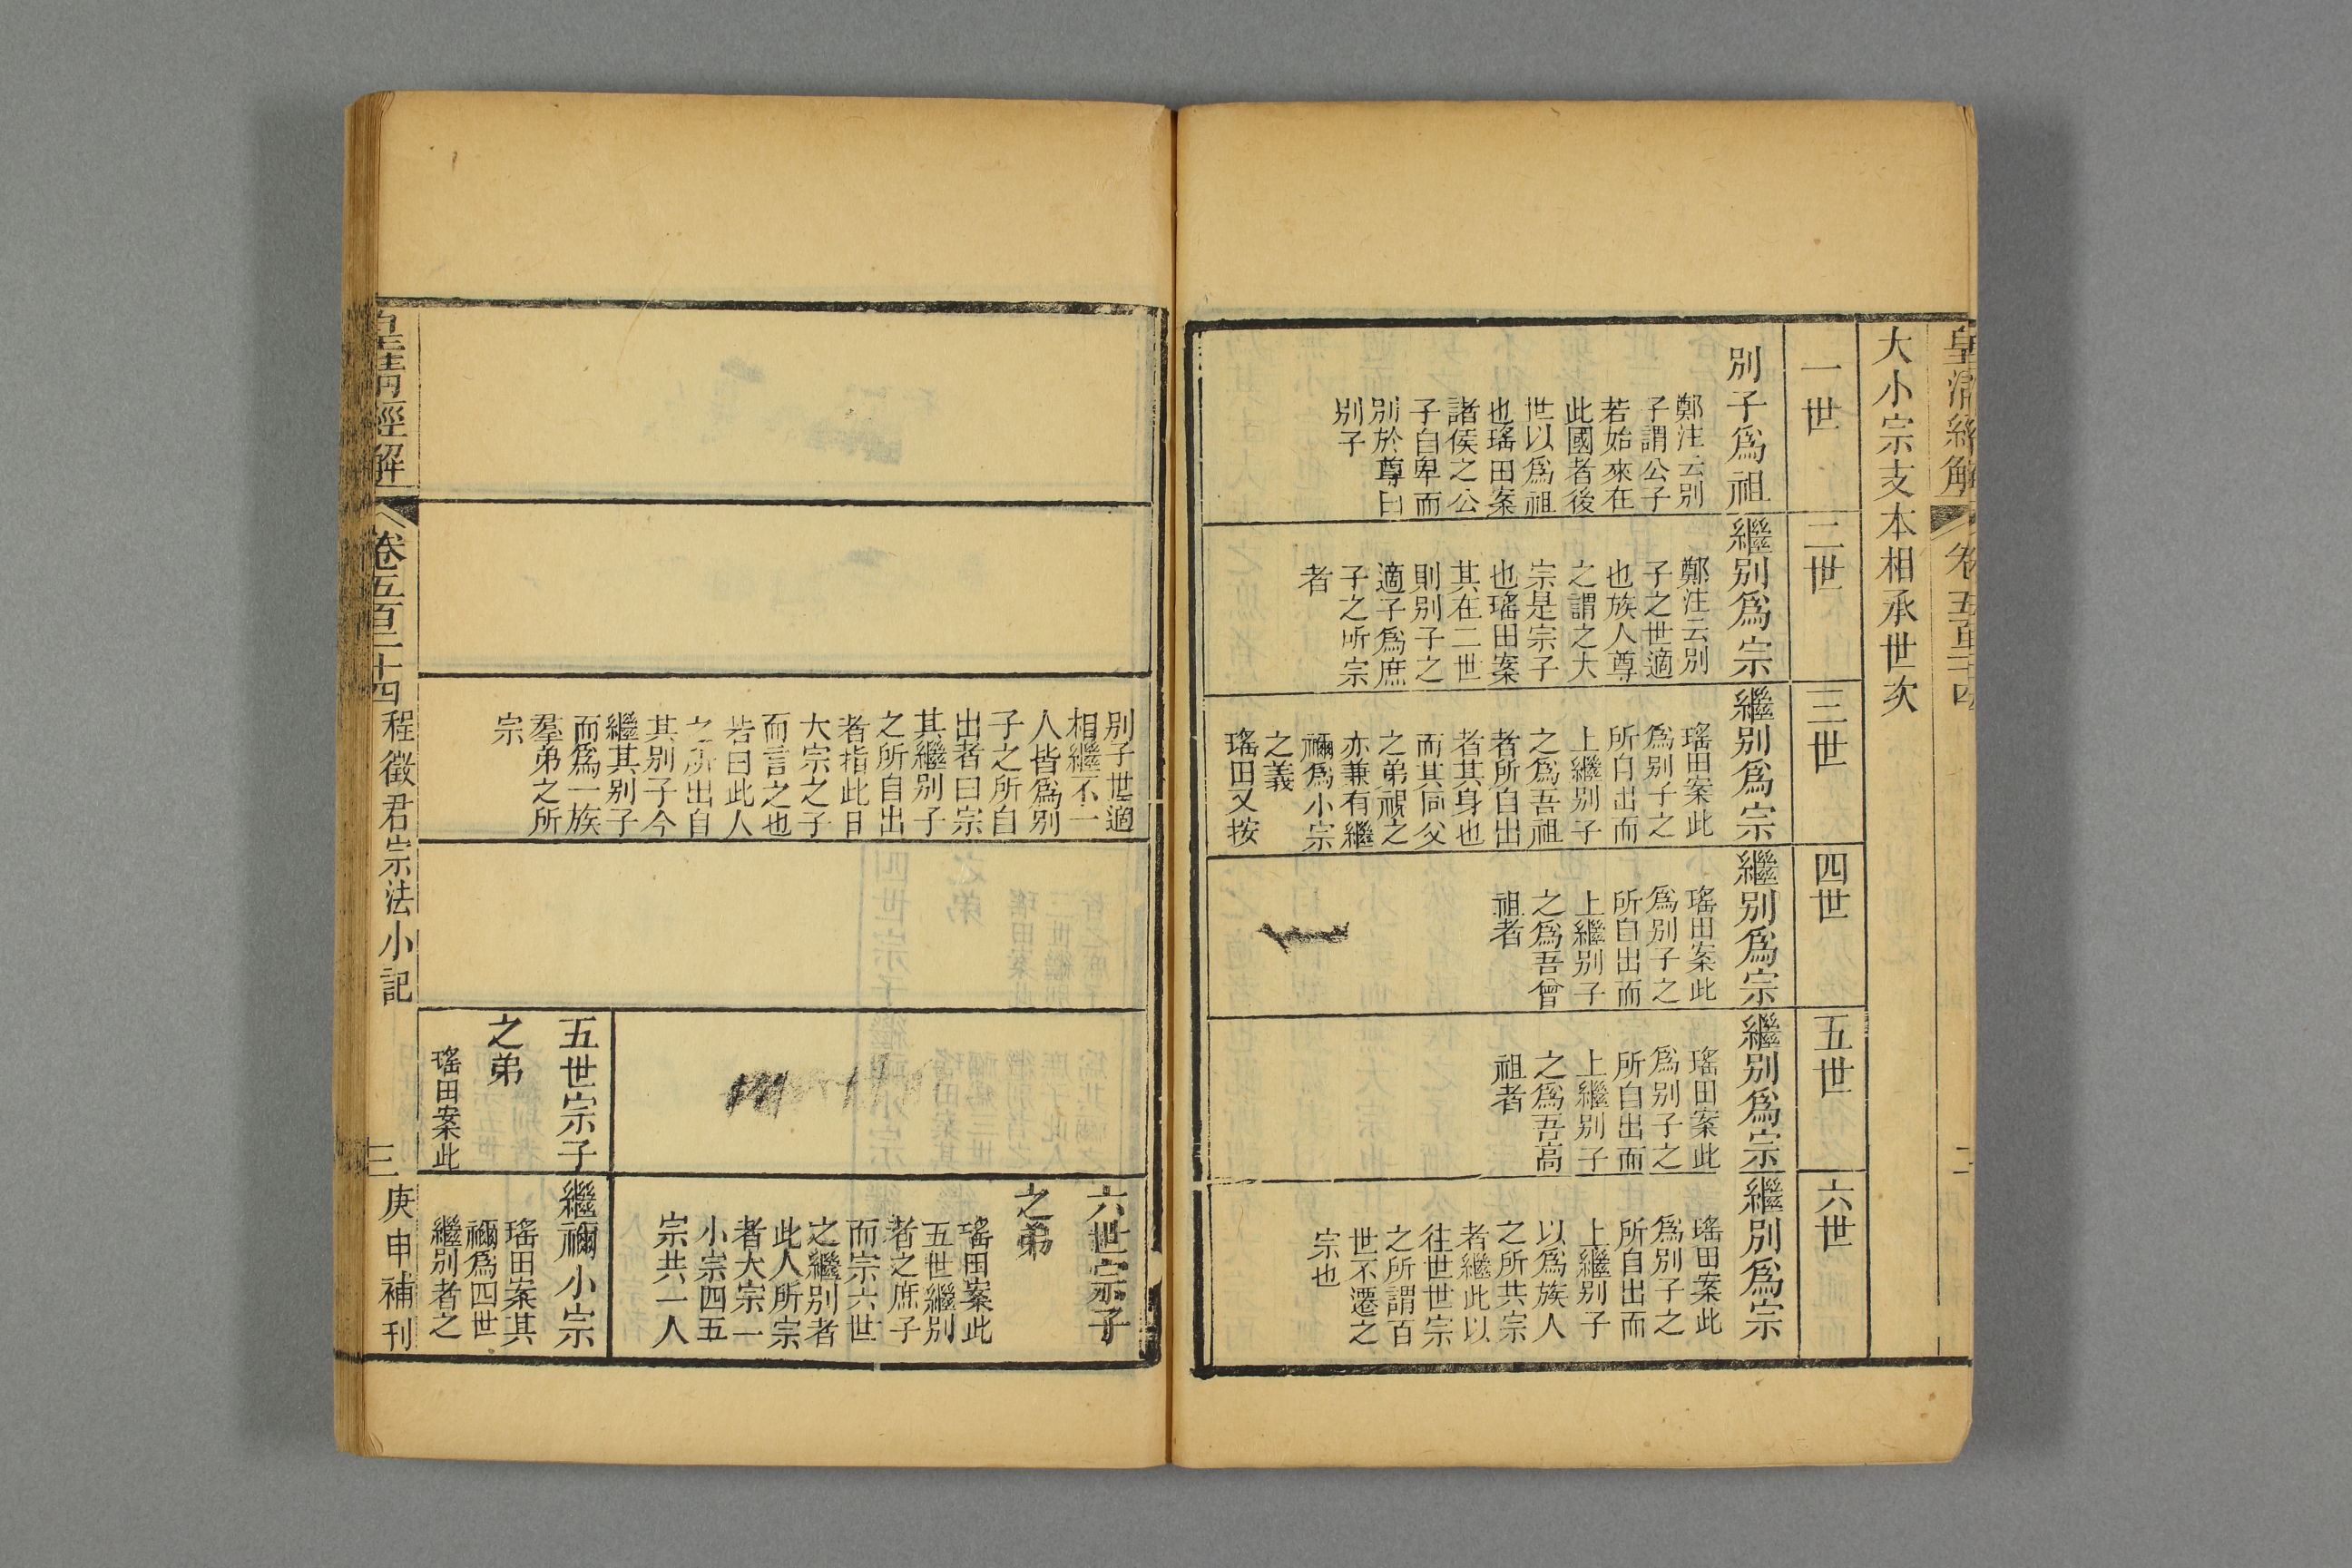 大小宗支本相承世次
一世
別子爲祖
鄭注云別
子謂公子
若始來在
此國者後
世以爲祖
也瑤田案
諸侯之公
子自卑而
別於尊曰
別子
二世
繼別爲宗
鄭注云別
子之世適
也族人尊
之謂之大
宗是宗子
也瑤田案
其在二世
則別子之
適子爲庶
子之所宗
者
三世
繼別爲宗
瑤田案此
爲別子之
所自出而
上繼別子
之爲吾祖
者所自出
者其身也
而其同父
之弟視之
亦兼有繼
禰爲小宗
之義
瑤田又按
四世
繼別爲宗
瑤田案此
爲別子之
所自出而
上繼別子
之爲吾曾
祖者
五世
繼別爲宗
瑤田案此
爲別子之
所自出而
上繼別子
之爲吾高
祖者
六世
繼別爲宗
瑤田案此
爲別子之
所自出而
上繼別子
以爲族人
之所共宗
者繼此以
往世世宗
之所謂百
世不遷之
宗也
別子世適
相繼不一
人皆爲別
子之所自
出者曰宗
其繼別子
之所自出
者指此曰
大宗之子
而言之也
若曰此人
之所出自
其別子今
繼其別子
而爲一族
羣弟之所
宗
六世宗子
之弟
瑤田案此
五世繼別
者之庶子
而宗六世
之繼別者
此人所宗
者大宗一
小宗四五
宗共一人
五世宗子
之弟
瑤田案此
繼禰小宗
瑤田案其
禰爲四世
繼別者之
皇清經解
卷五百二十四
程徵君宗法小記
三
庚申補刊